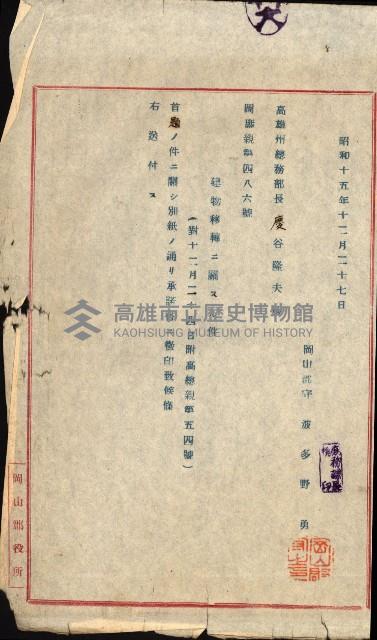 昭和十五年十二月二十七日
岡山郡守 波多野勇
高雄州總務部長 慶谷隆夫
岡庶親第四八六號
建物移轉ニ關スル件
(對十二月二十四日附高總親第五四號)
首題ノ件ニ關シ別紙ノ通リ承諾書徵印致候條
右送付ス
岡山郡役所
高雄市立歷史博物館
KAOHSIUNG MUSEUM OF HISTORY